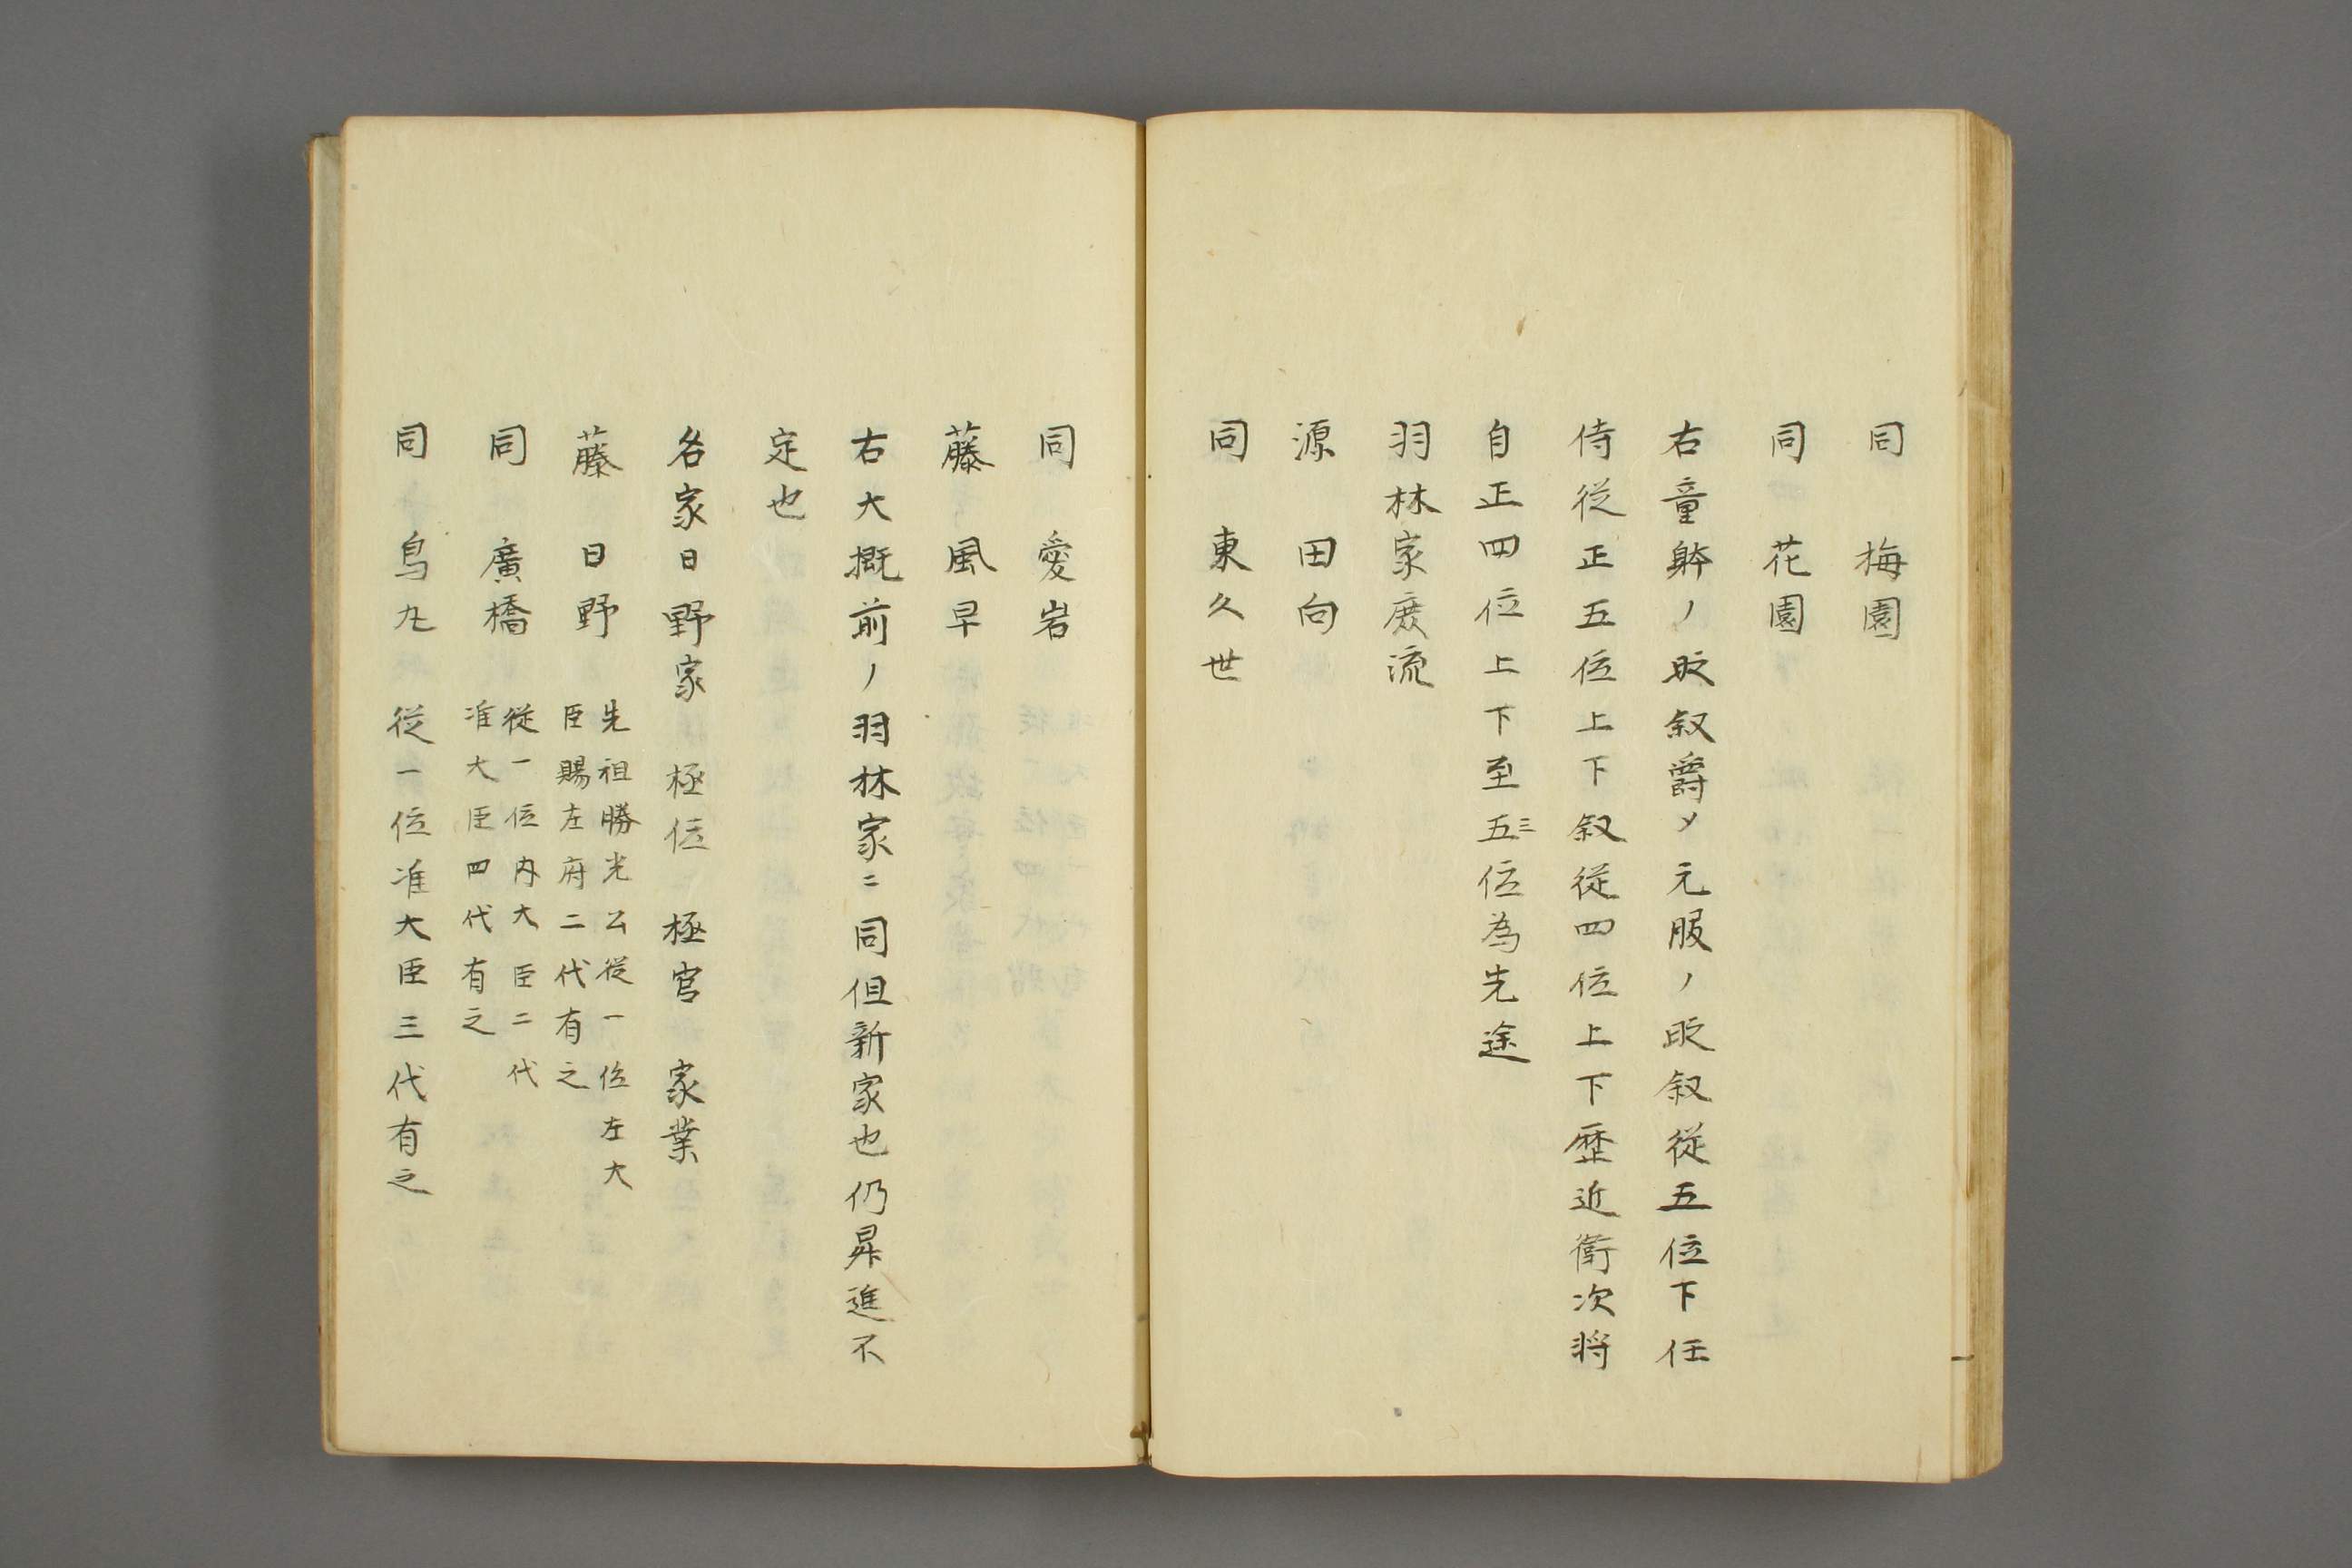 同　梅園
同　花園
右童躰ノ時叙爵メ元服ノ時叙従五位下任
侍従正五位上下叙従四位上下歴近衛次将
自正四位上下至五三位為先途
羽林家庶流
源　田向
同　東久世
同　愛岩
藤　風早
右大概前ノ羽林家ニ同但新家也仍昇進不
定也
名家日野家　極位　極官　家業
藤　日野　先祖勝光公従一位左大
臣賜左府二代有之
同　廣橋　従一位内大臣二代
准大臣四代有之
同　烏丸　従一位准大臣三代有之